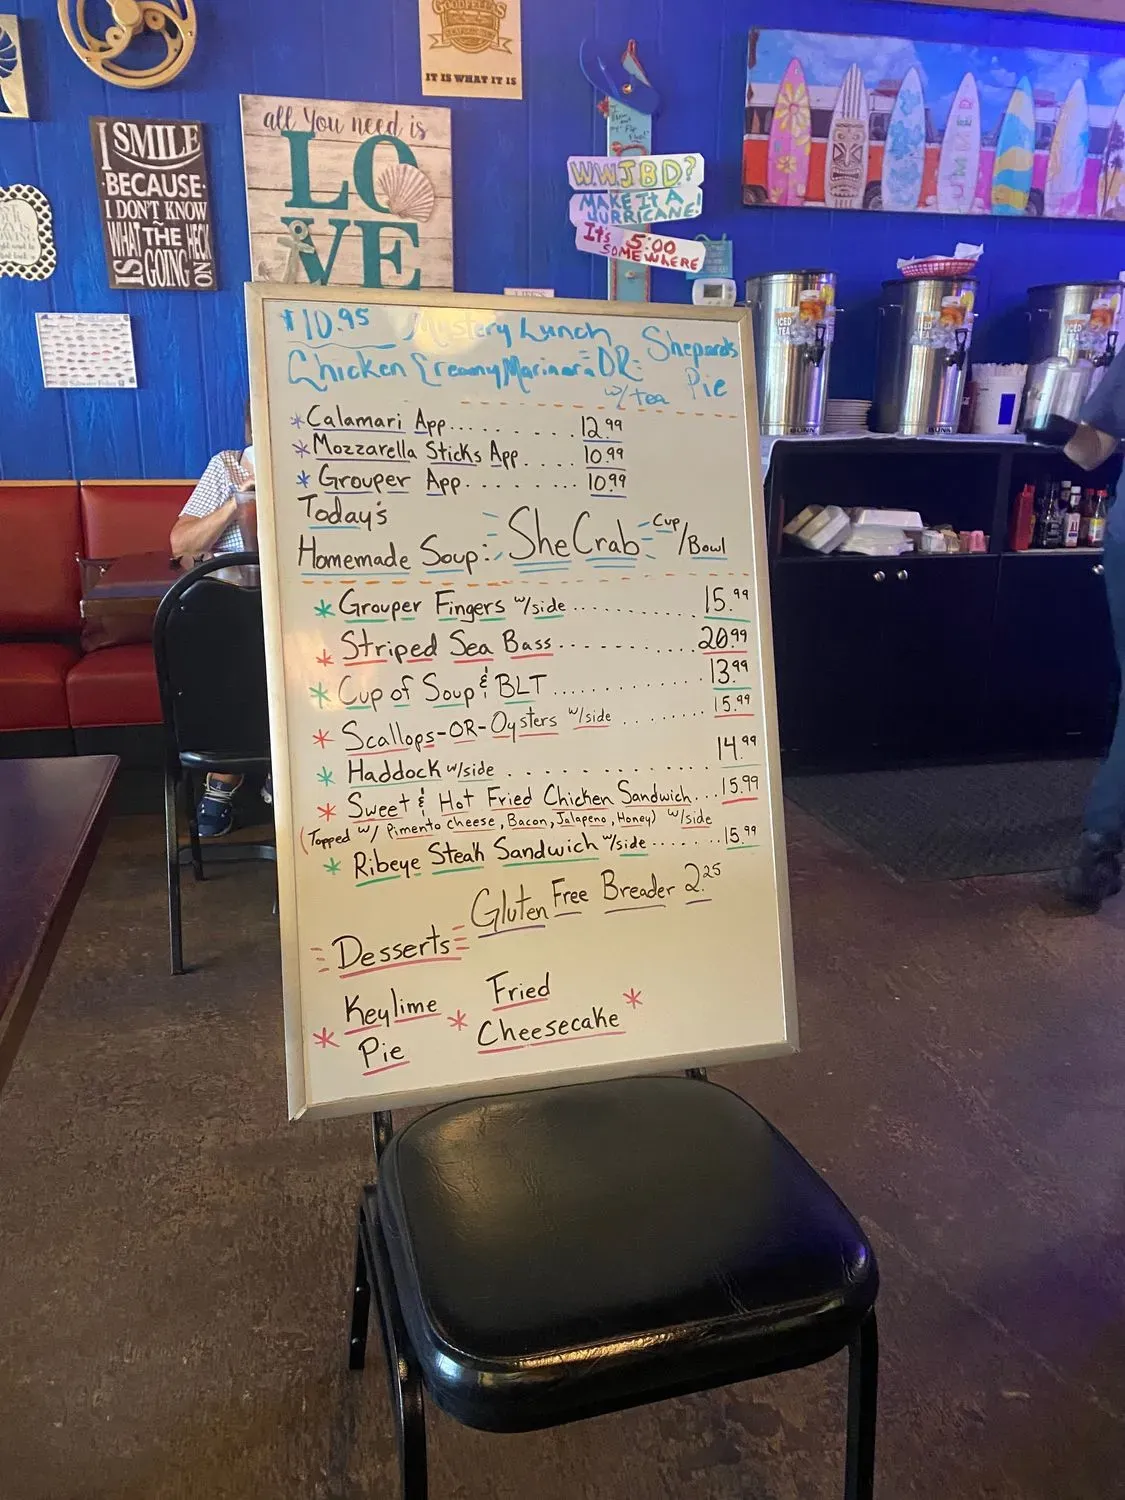 GOODFELLAS
IT IS WHAT IT IS
I SMILE
BECAUSE
I DON'T KNOW
WHAT THE HECK
IS GOING ON
all you need is
LOVE
WWJBD?
MAKE IT A
HURRICANE!
It's 5:00
SOMEWHERE
ICED TEA
ICED TEA
ICED TEA
BUNN
BUNN
$10.95 Mystery Lunch
Chicken Creamy Marinara -OR- Shepards Pie
w/tea
* Calamari App........ 12.99
* Mozzarella Sticks App.... 10.99
* Grouper App........ 10.99
Today's
Homemade Soup: She Crab Cup/Bowl
* Grouper Fingers w/side.......... 15.99
* Striped Sea Bass.......... 20.99
* Cup of Soup & BLT........... 13.99
* Scallops-OR-Oysters w/side....... 15.99
* Haddock w/side............ 14.99
* Sweet & Hot Fried Chicken Sandwich... 15.99
(Topped w/ Pimento cheese, Bacon, Jalapeno, Honey) w/side
* Ribeye Steak Sandwich w/side....... 15.99
Gluten Free Breader 2.25
Desserts
* Keylime Pie * Fried Cheesecake *